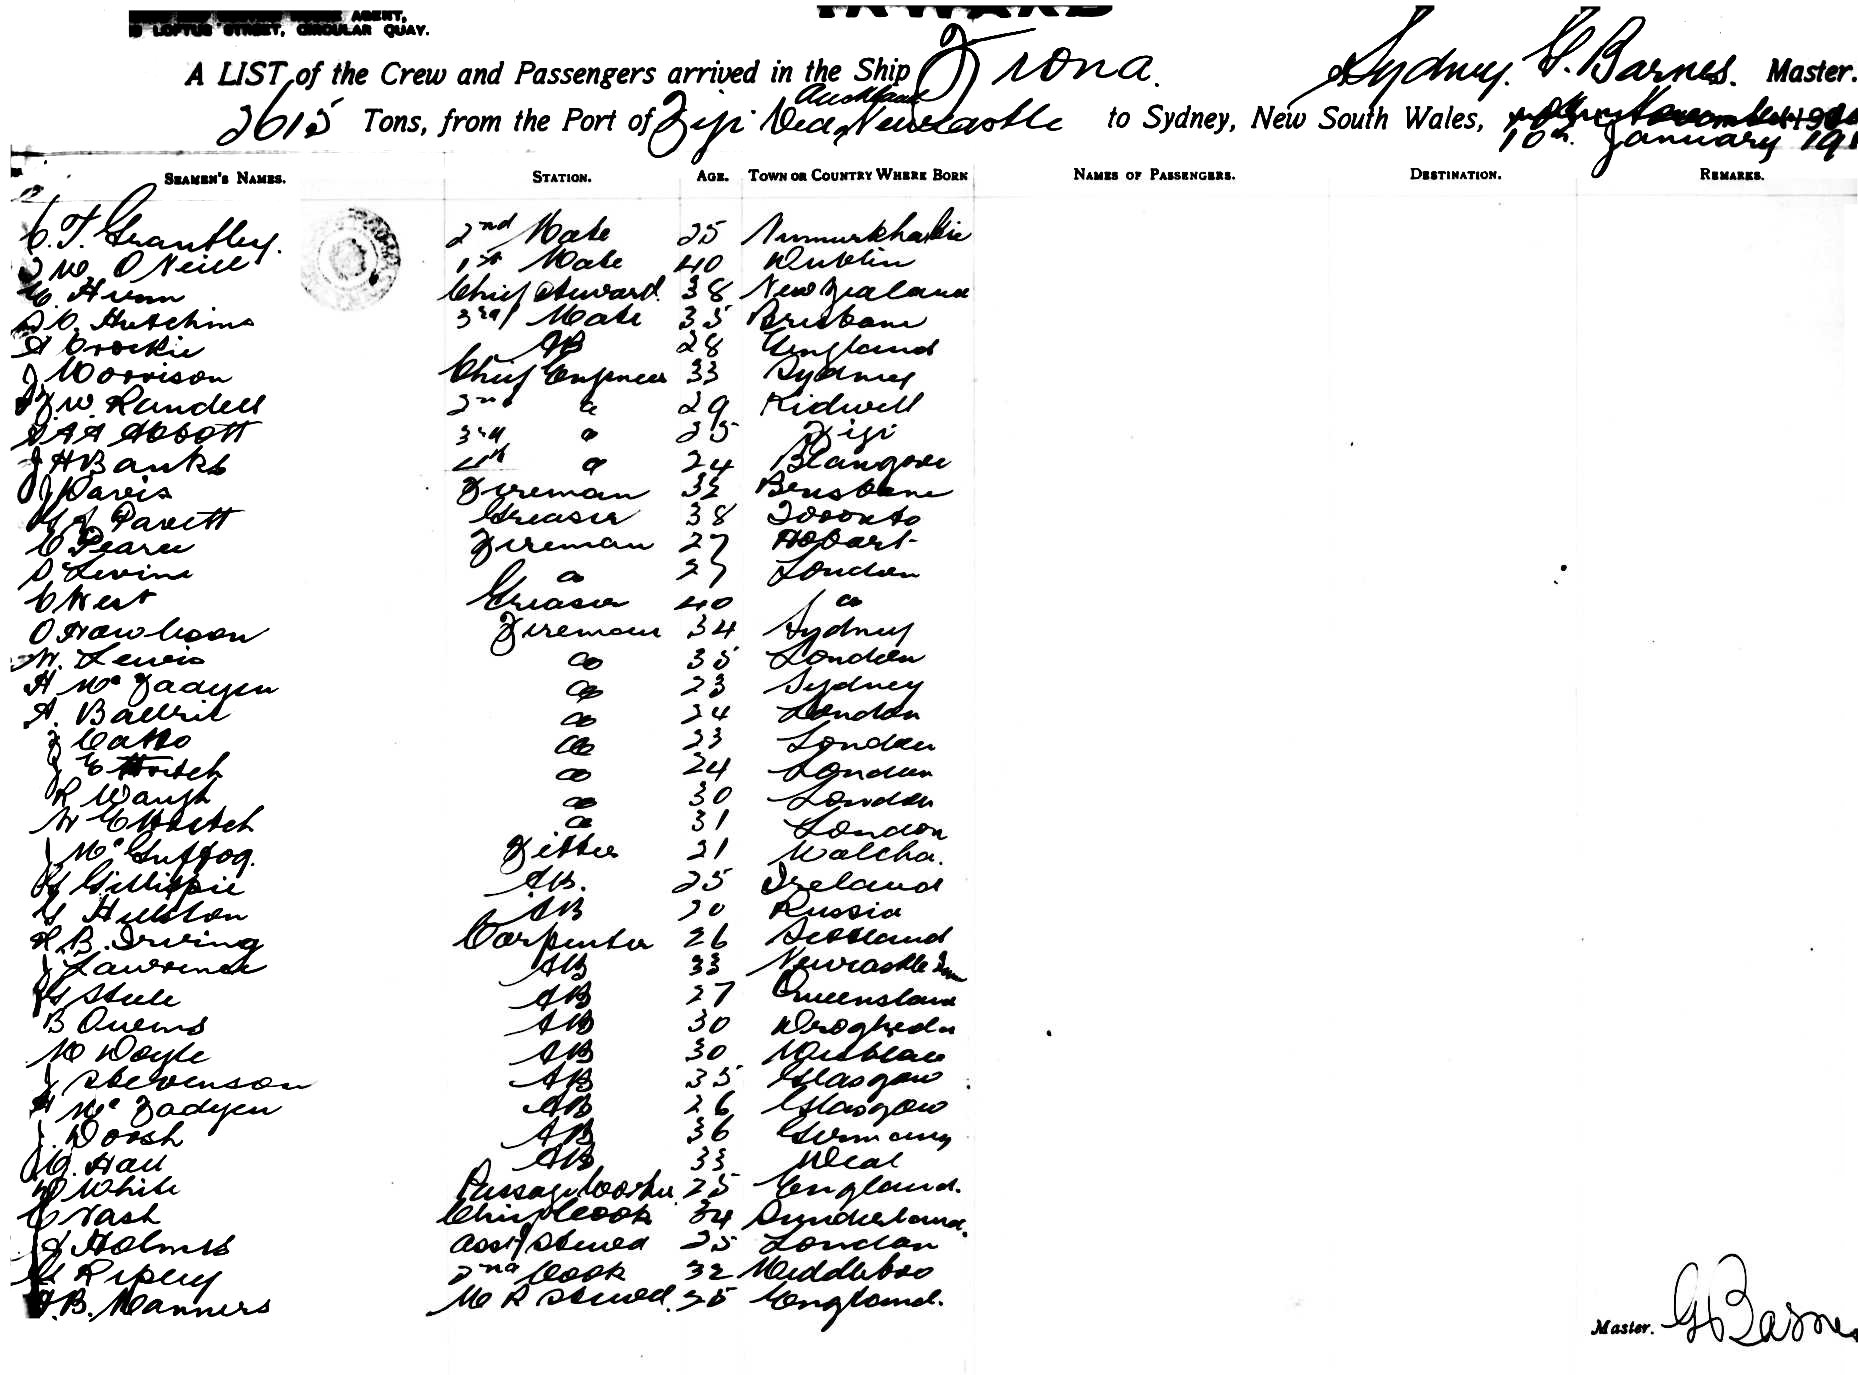 INWARD
AGENT,
LOFTUS STREET, CIRCULAR QUAY.
A LIST of the Crew and Passengers arrived in the Ship Fiona. Sydney. G. Barnes. Master.
Auckland
2615 Tons, from the Port of Fiji Via Newcastle to Sydney, New South Wales,
10th. January 19
SEAMEN'S NAMES. STATION. AGE. TOWN OR COUNTRY WHERE BORN NAMES OF PASSENGERS. DESTINATION. REMARKS.
C. T. Grantley. 2nd Mate 25
O'Neill 1st Mate 40 Dublin
C. Hunn Chief Steward. 38 New Zealand
Hutchins 3rd Mate 35 Brisbane
A Crockie AB 28 England
J Morrison Chief Engineer 33 Sydney
F. W. Randell 2nd " 29 Kidwell
A A Abbott 3rd " 25 Fiji
J H Banks 4th " 24
J Davis Fireman 32 Brisbane
Pavett Greaser 38 Toronto
C Pearce Fireman 27 Hobart
S Levine " 27 London
C West Greaser 40 "
O Hawkson Fireman 34 Sydney
W. Lewis " 35 London
H McFadyen " 23 Sydney
A. " 24 London
J Catto " 23 London
J E " 24 London
R Waugh " 30 London
W E " 31 London
J McGuffog. Fitter 21 Walcha.
Gillispie AB. 25 Ireland
G Hulston AB 20 Russia
R. B. Irving Carpenter 26 Scotland
J Lawrence AB 33 Newcastle
G Steele AB 27 Queensland
B Owens AB 30 Drogheda
M Doyle AB 30 Dublin
J Stevenson AB 35 Glasgow
H McFadyen AB 26 Glasgow
J. Doosh AB 36 Germany
C. Hall AB 33 Deal
D White Passage Worker 25 England.
C Nash Chief Cook 34 Sunderland.
J Holmes Asst Steward 25 London
G Ripley 2nd Cook 32 Middlesbro
F. B. Manners M R Steward. 25 England.
Master. G Barnes